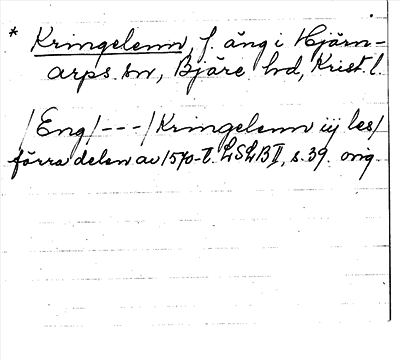 * Kringelenn, f. äng i Hjärn-
arps sn, Bjäre hd, Krist. l.
/Eng/---/Kringelenn iij les/
förra delen av 1570-t. LSLB II, s. 39. orig.